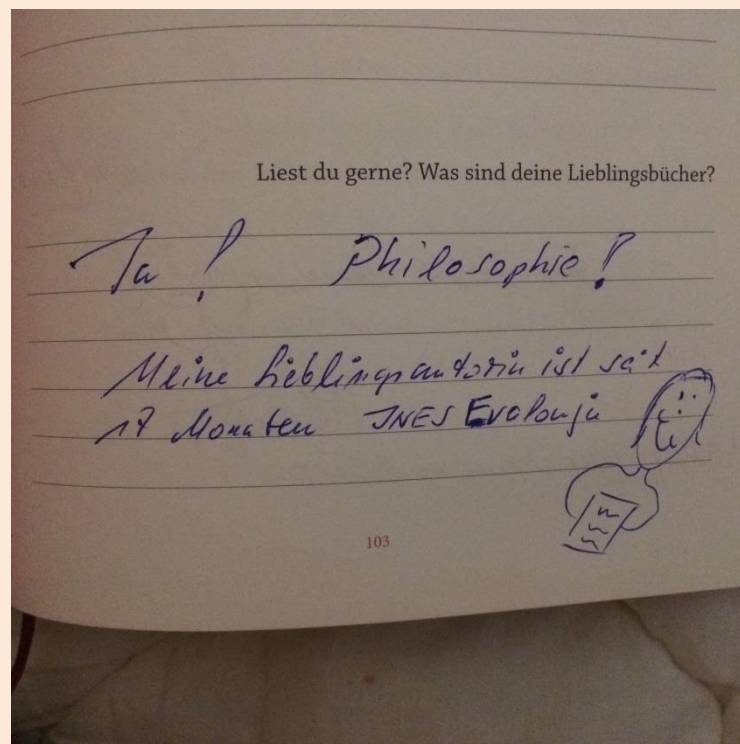 Liest du gerne? Was sind deine Lieblingsbücher?
Ja ! Philosophie !
Meine Lieblingsautorin ist seit
17 Monaten INES Evalonja
103